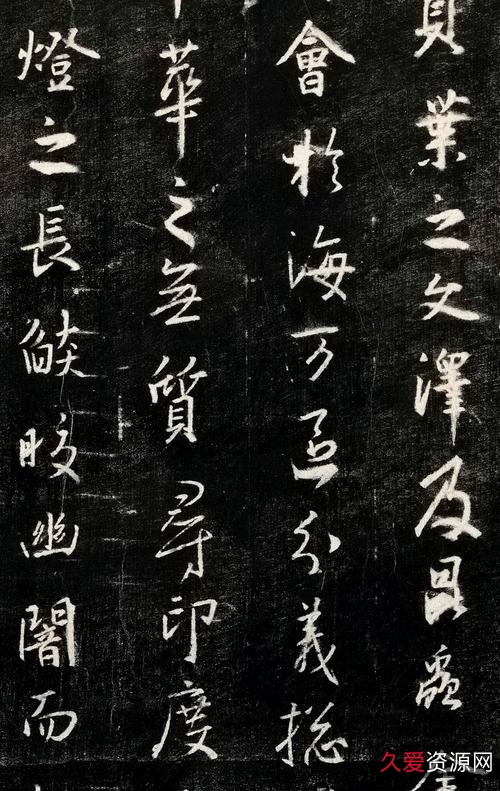 貝葉之文澤及昆蟲
會於海万區分義揔
華之無質尋印度
燈之長燄皎幽闇而
久爱资源网